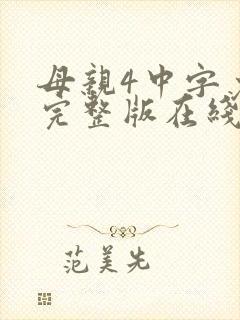 母親4中字
完整版在綫
范美先